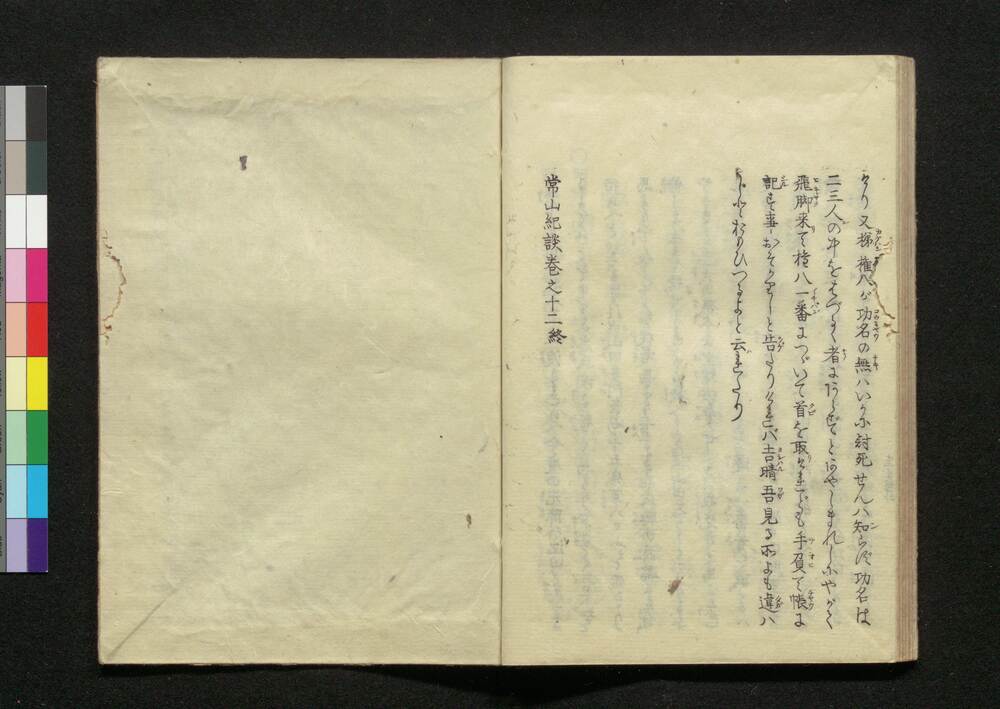 けり又梯権八が功名の無ハいかに討死せんハ知らず功名は
二三人の中をはづるゝ者にあらずとあやしまれしにやがて
飛脚来て権八一番につゞいて首を取けれども手負て帳に
記す事おそかりしと告たりければ吉晴吾見る所よも違ハ
じとおもひつるよと云れたり
常山紀談巻之十二終